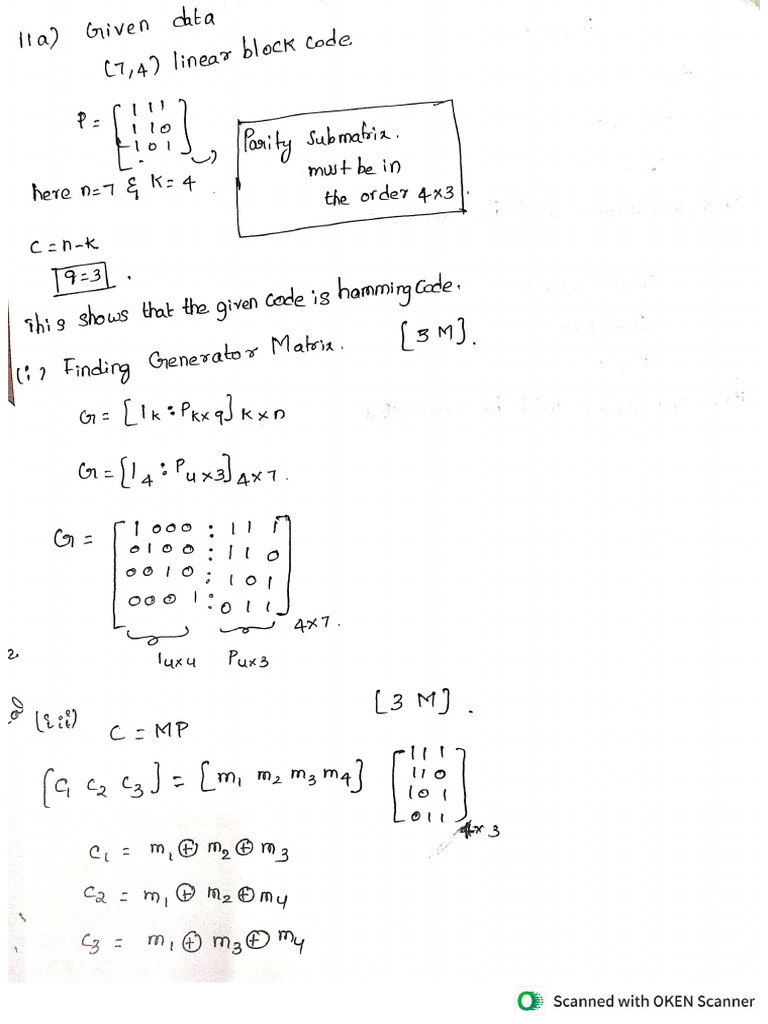 11a) Given data
(7,4) linear block code
P = [ 1 1 1
1 1 0
1 0 1 ]
Parity Submatrix.
must be in
the order 4×3.
here n=7 & k=4
C = n-k
q=3.
This shows that the given code is hamming code.
(i) Finding Generator Matrix. [3 M].
G = [Ik : Pk×q] k×n
G = [I4 : P4×3] 4×7.
G = [ 1 0 0 0 : 1 1 1
0 1 0 0 : 1 1 0
0 0 1 0 : 1 0 1
0 0 0 1 : 0 1 1 ] 4×7.
I4×4 P4×3
2
(iii) [3 M].
C = MP
[C1 C2 C3] = [m1 m2 m3 m4] [ 1 1 1
1 1 0
1 0 1
0 1 1 ] 4×3
C1 = m1 ⊕ m2 ⊕ m3
C2 = m1 ⊕ m2 ⊕ m4
C3 = m1 ⊕ m3 ⊕ m4
Scanned with OKEN Scanner